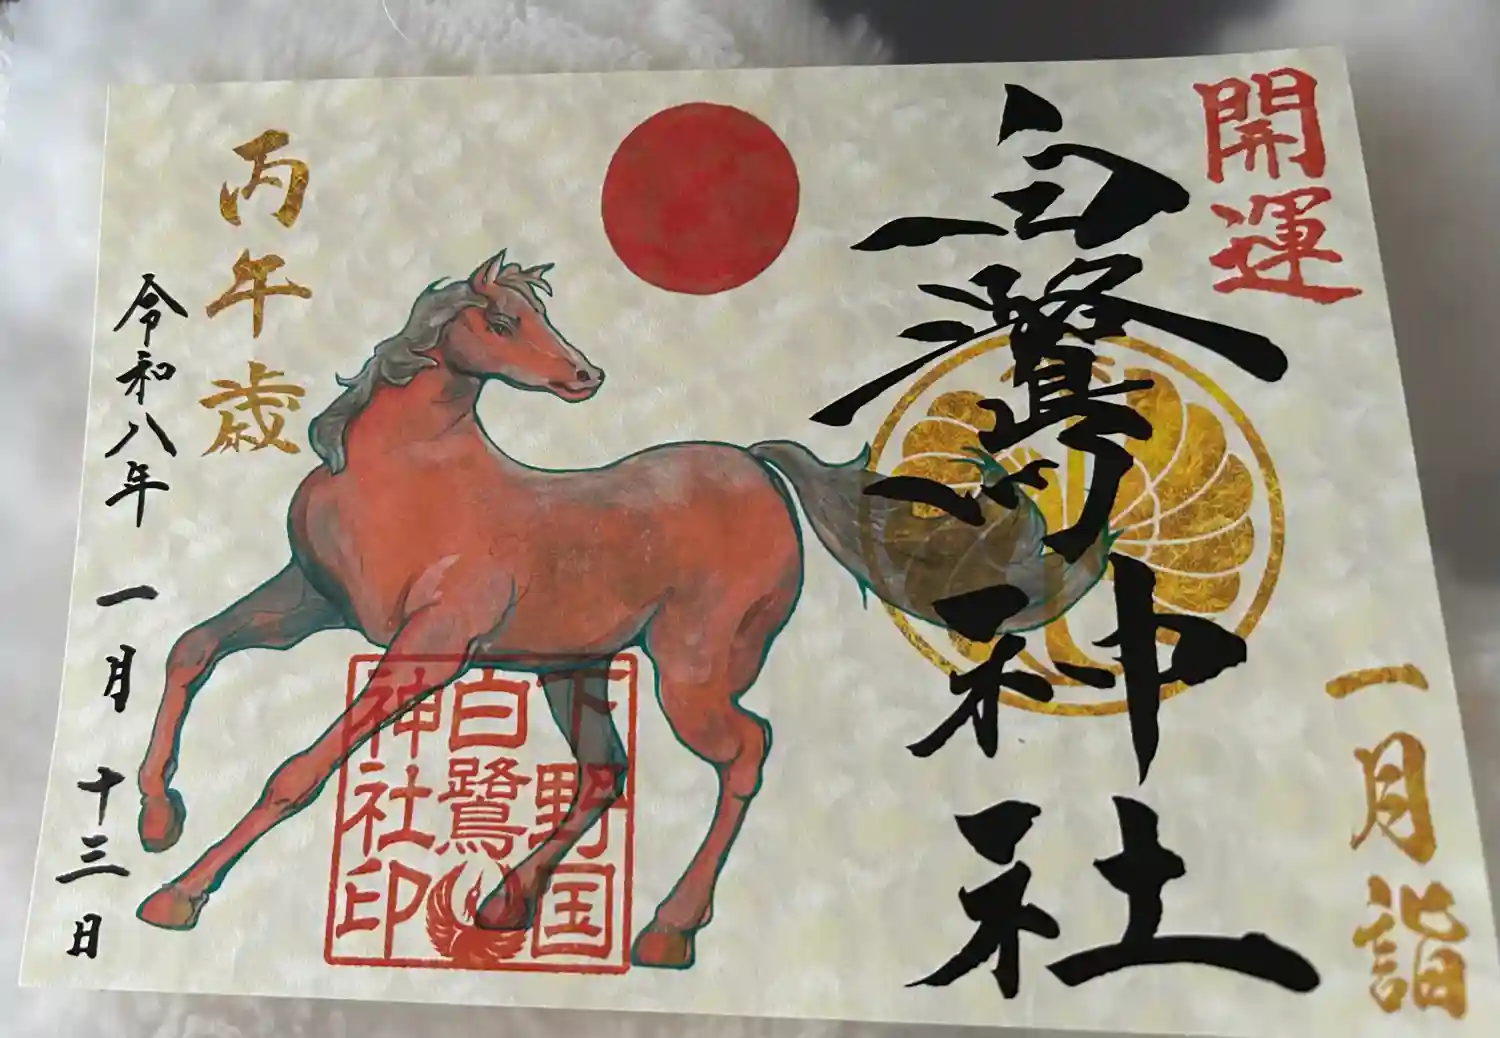 開運
一月詣
白鷺神社
下野国
白鷺
神社印
丙午歳
令和八年 一月 十三日